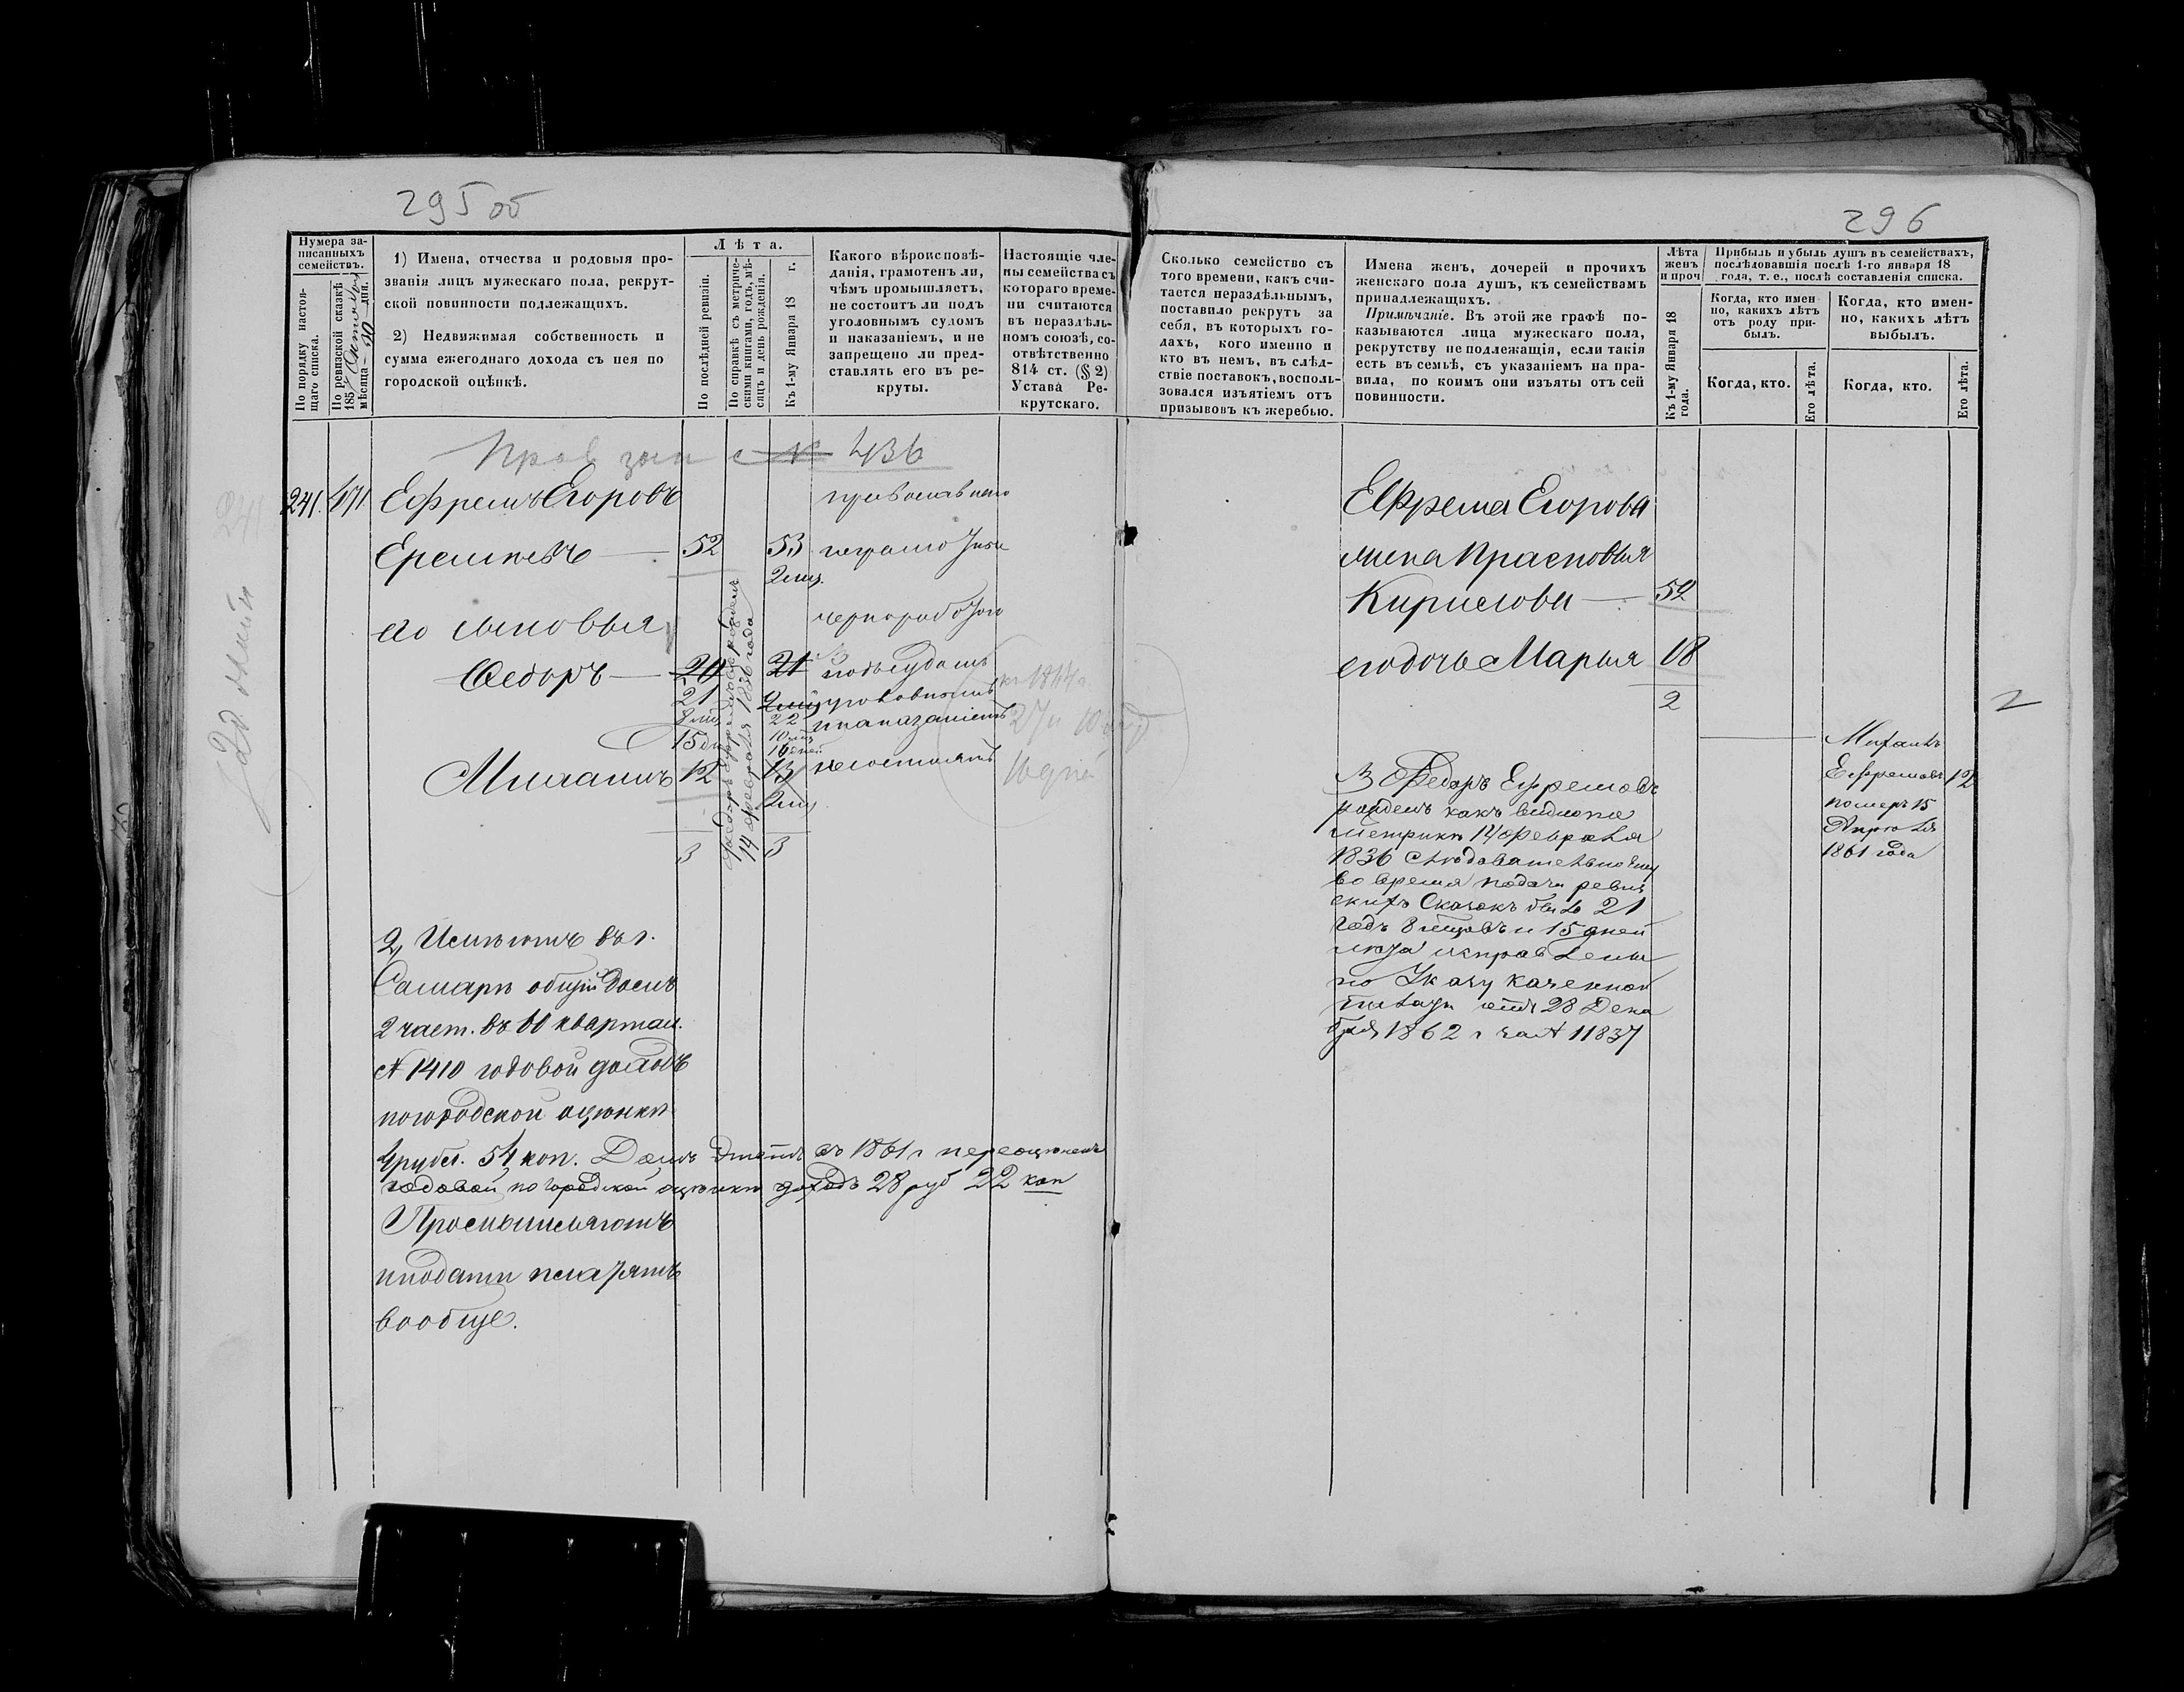 295 об
Нумера за-
писанныхъ
семействъ.
По порядку настоя-
щаго списка.
По ревизской сказкѣ
185
мѣсяца 30 дня.
1) Имена, отчества и родовыя про-
званія лицъ мужескаго пола, рекрут-
ской повинности подлежащихъ.
2) Недвижимая собственность и
сумма ежегоднаго дохода съ нея по
городской оцѣнкѣ.
Лѣта.
По послѣдней ревизіи.
По справкѣ съ метриче-
скими книгами, годъ, мѣ-
сяцъ и день рожденія.
Къ 1-му Января 18 г.
Какого вѣроисповѣ-
данія, грамотенъ ли,
чѣмъ промышляетъ,
не состоитъ ли подъ
уголовнымъ судомъ
и наказаніемъ, и не
запрещено ли пред-
ставлять его въ ре-
круты.
Настоящіе чле-
ны семейства съ
котораго време-
ни считаются
въ нераздѣль-
номъ союзѣ, со-
отвѣтственно
814 ст. (§ 2)
Устава Ре-
крутскаго.
436
241. 471 Ефремъ Егоровъ православнаго
Еремѣевъ — 52 53 неграмотные
2 мѣц.
его сыновья чернорабочіе
Федоръ — 20 21 подъ судомъ
21 уголовнымъ
8 мѣц 22 и наказаніемъ
15 дн 10 мѣц
16 дней
Михаилъ 12 13 не состоятъ
2 мѣц.
14 февраля 1836 года
3 3
2, Имѣютъ въ г.
Самарѣ общій домъ
2 част. въ 60 квартал.
№ 1410 годовой доходъ
по городской оцѣнкѣ
4 рубл. 54 коп. Домъ этотъ въ 1861 г переоцѣненъ
годовой по городской оцѣнкѣ доходъ 28 руб 22 коп
Промышляютъ
и подати платятъ
вообще.
296
Сколько семейство съ
того времени, какъ счи-
тается нераздѣльнымъ,
поставило рекрутъ за
себя, въ которыхъ го-
дахъ, кого именно и
кто въ немъ, въ слѣд-
ствіе поставокъ, восполь-
зовался изъятіемъ отъ
призывовъ къ жеребью.
Имена женъ, дочерей и прочихъ
женскаго пола душъ, къ семействамъ
принадлежащихъ.
Примѣчаніе. Въ этой же графѣ по-
казываются лица мужескаго пола,
рекрутству не подлежащія, если такія
есть въ семьѣ, съ указаніемъ на пра-
вила, по коимъ они изъяты отъ сей
повинности.
Лѣта
женъ
и проч
Къ 1-му Января 18
года.
Прибыль и убыль душъ въ семействахъ,
послѣдовавшія послѣ 1-го января 18
года, т. е., послѣ составленія списка.
Когда, кто имен-
но, какихъ лѣтъ
отъ роду при-
былъ.
Когда, кто имен-
но, какихъ лѣтъ
выбылъ.
Когда, кто.
Его лѣта.
Когда, кто.
Его лѣта.
Ефрема Егорова
жена Прасковья
Кирилова — 52
его дочь Марья 18
2
2
Михаилъ
Ефремовъ 12
померъ 15
Апрѣля
1861 года
3 Федоръ Ефремовъ
рожденъ какъ видно по
метрикѣ 14 февраля
1836 слѣдовательно ему
во время подачи ревиз
скихъ Сказокъ было 21
годъ 8 мѣцовъ и 15 дней
лѣта исправлены
по Указу Казенной
палаты отъ 28 Дека
бря 1862 г за № 11837